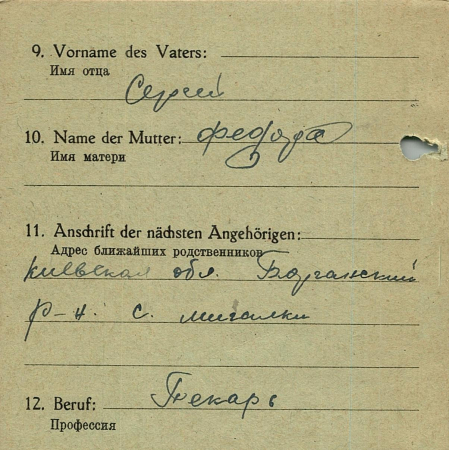 9. Vorname des Vaters:
Имя отца
Сергей
10. Name der Mutter: Федора
Имя матери
11. Anschrift der nächsten Angehörigen:
Адрес ближайших родственников
Киевская обл.
р-н. с. мигалки
12. Beruf: Пекарь
Профессия